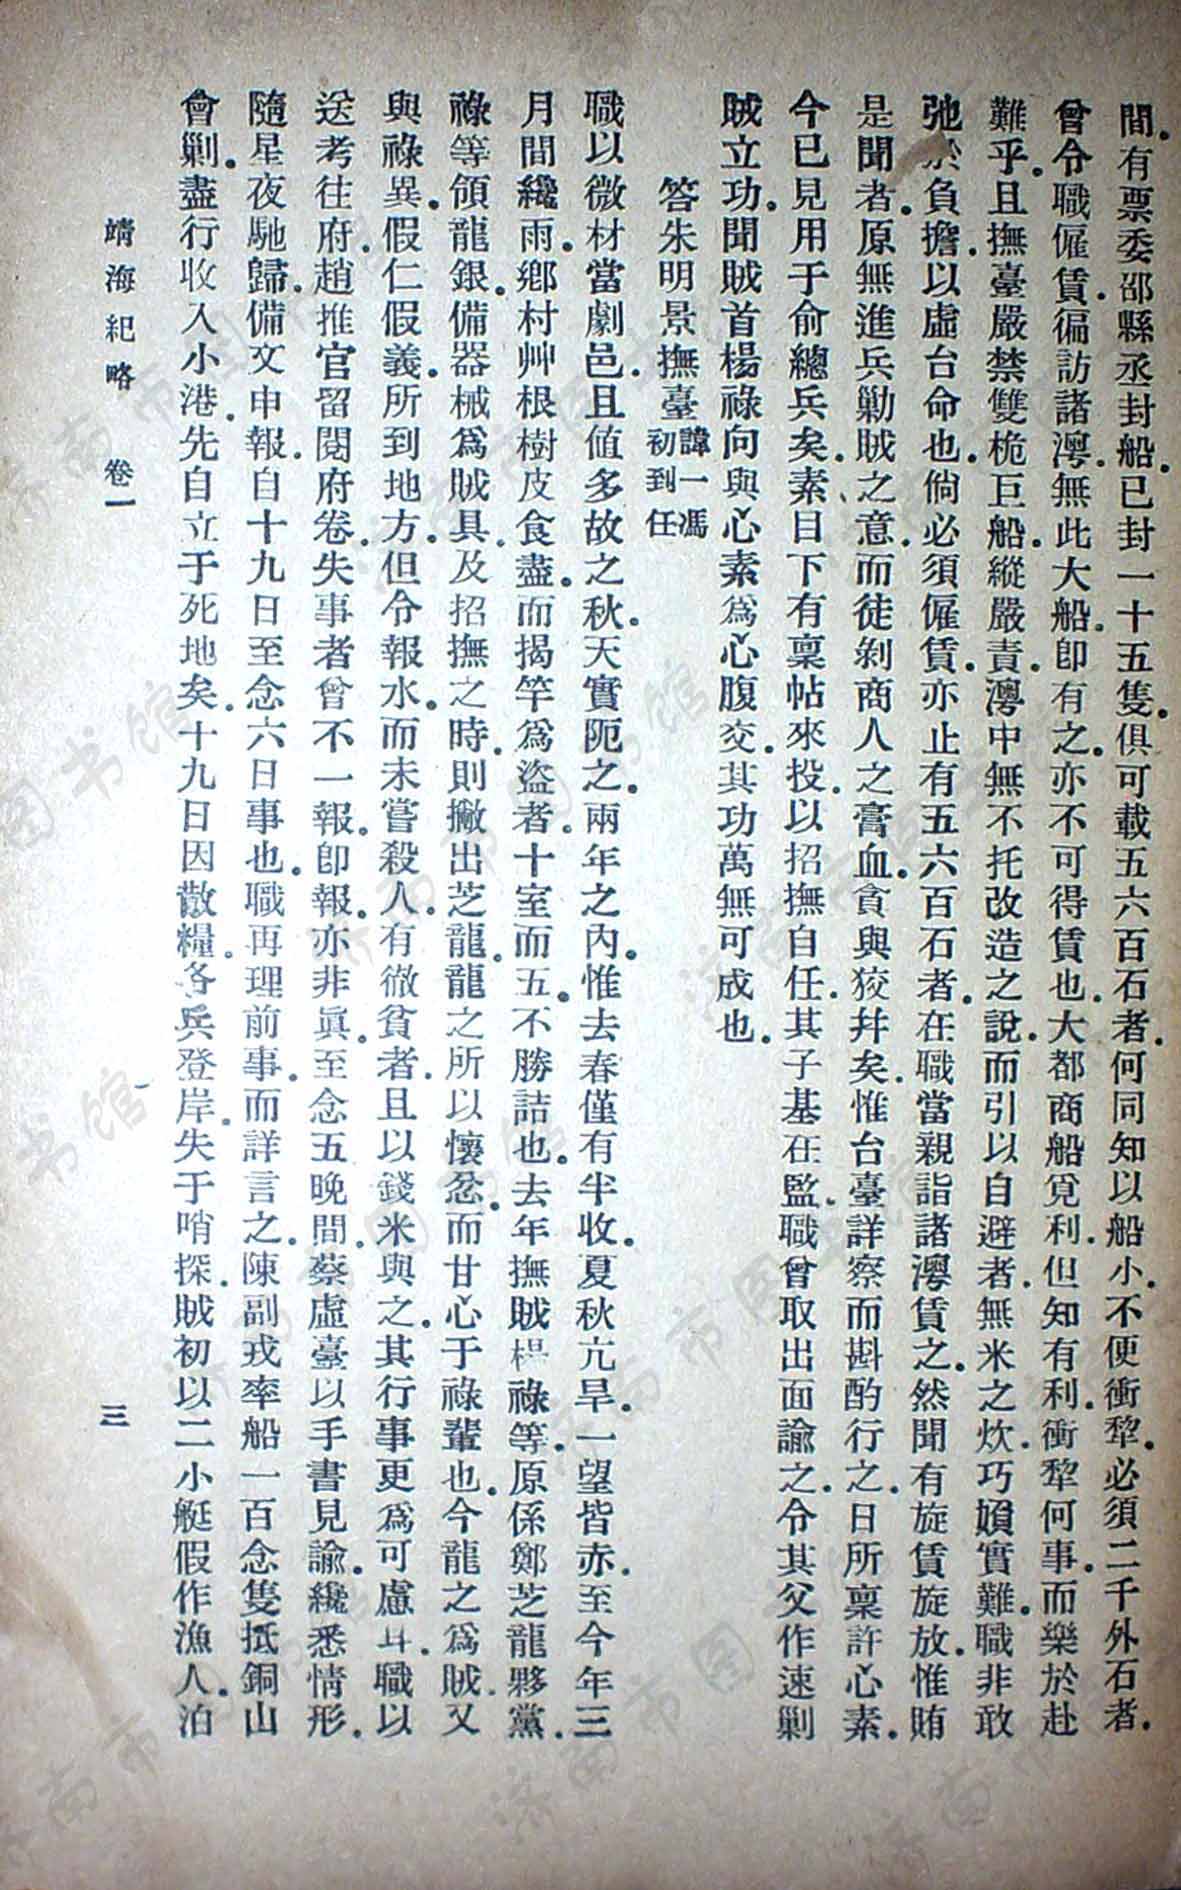 間。有票委邵縣丞封船。已封一十五隻。俱可載五六百石者。何同知以船小。不便衝犂。必須二千外石者。
曾令職僱賃。徧訪諸澚。無此大船。卽有之。亦不可得賃也。大都商船覓利。但知有利。衝犂何事。而樂於赴
難乎。且撫臺嚴禁雙桅巨船。縱嚴責。澚中無不托改造之說。而引以自避者。無米之炊。巧媍實難。職非敢
弛於負擔。以虛台命也。倘必須僱賃。亦止有五六百石者。在職當親詣諸澚賃之。然聞有旋賃旋放。惟賄
是聞者。原無進兵勦賊之意。而徒剝商人之膏血。貪與狡幷矣。惟台臺詳察而斟酌行之。日所稟許心素。
今已見用于俞總兵矣。素日下有稟帖來投。以招撫自任。其子基在監。職曾取出面諭之。令其父作速剿
賊立功。聞賊首楊祿向與心素爲心腹交。其功萬無可成也。
答朱明景撫臺諱一馮初到任
職以微材當劇邑。且值多故之秋。天實阨之。兩年之內。惟去春僅有半收。夏秋亢旱。一望皆赤。至今年三
月間纔雨。鄉村艸根樹皮食盡。而揭竿爲盜者。十室而五。不勝詰也。去年撫賊楊祿等。原係鄭芝龍夥黨。
祿等領龍銀。備器械爲賊具。及招撫之時。則撇出芝龍。龍之所以懷忿。而甘心于祿輩也。今龍之爲賊。又
與祿異。假仁假義。所到地方。但令報水。而未嘗殺人。有徵貧者。且以錢米與之。其行事更爲可慮耳。職以
送考往府。趙推官留閱府卷。失事者曾不一報。卽報。亦非眞。至念五晚間。蔡虛臺以手書見諭。纔悉情形。
隨星夜馳歸。備文申報。自十九日至念六日事也。職再理前事。而詳言之。陳副戎率船一百念隻抵銅山
會剿。盡行收入小港。先自立于死地矣。十九日因散糧。各兵登岸。失于哨探。賊初以二小艇假作漁人。泊
靖海紀略 卷一 三